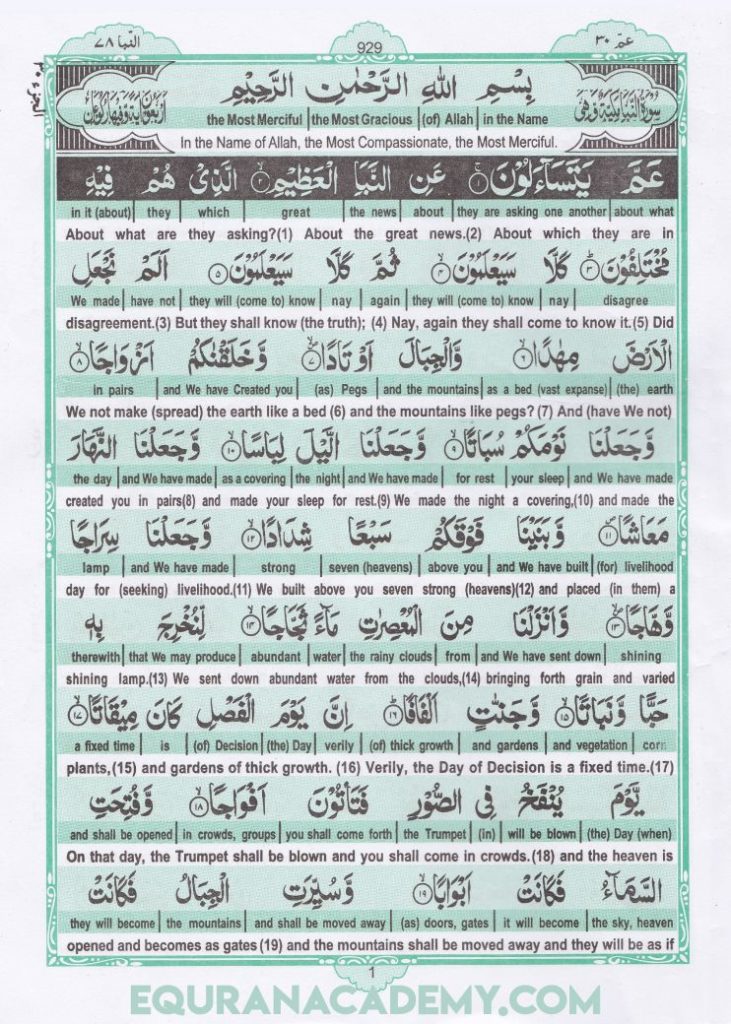 النبا ٧٨
929
عمّ ٣٠
بِسْمِ اللهِ الرَّحْمٰنِ الرَّحِيْمِ
the Most Merciful | the Most Gracious | (of) Allah | in the Name
In the Name of Allah, the Most Compassionate, the Most Merciful.
عَمَّ يَتَسَآءَلُوْنَ ۝١ عَنِ النَّبَاِ الْعَظِيْمِ ۝٢ الَّذِىْ هُمْ فِيْهِ
in it (about) | they | which | great | the news | about | they are asking one another | about what
About what are they asking?(1) About the great news.(2) About which they are in
مُخْتَلِفُوْنَ ۝٣ كَلَّا سَيَعْلَمُوْنَ ۝٤ ثُمَّ كَلَّا سَيَعْلَمُوْنَ ۝٥ اَلَمْ نَجْعَلِ
We made | have not | they will (come to) know | nay | again | they will (come to) know | nay | disagree
disagreement.(3) But they shall know (the truth); (4) Nay, again they shall come to know it.(5) Did
الْاَرْضَ مِهٰدًا ۝٦ وَّالْجِبَالَ اَوْتَادًا ۝٧ وَّخَلَقْنٰكُمْ اَزْوَاجًا ۝٨
in pairs | and We have Created you | (as) Pegs | and the mountains | as a bed (vast expanse) | (the) earth
We not make (spread) the earth like a bed (6) and the mountains like pegs? (7) And (have We not)
وَّجَعَلْنَا نَوْمَكُمْ سُبَاتًا ۝٩ وَّجَعَلْنَا الَّيْلَ لِبَاسًا ۝١٠ وَّجَعَلْنَا النَّهَارَ
the day | and We have made | as a covering | the night | and We have made | for rest | your sleep | and We have made
created you in pairs(8) and made your sleep for rest.(9) We made the night a covering,(10) and made the
مَعَاشًا ۝١١ وَّبَنَيْنَا فَوْقَكُمْ سَبْعًا شِدَادًا ۝١٢ وَّجَعَلْنَا سِرَاجًا
lamp | and We have made | strong | seven (heavens) | above you | and We have built | (for) livelihood
day for (seeking) livelihood.(11) We built above you seven strong (heavens)(12) and placed (in them) a
وَّهَّاجًا ۝١٣ وَّاَنْزَلْنَا مِنَ الْمُعْصِرٰتِ مَآءً ثَجَّاجًا ۝١٤ لِّنُخْرِجَ بِهٖ
therewith | that We may produce | abundant | water | the rainy clouds | from | and We have sent down | shining
shining lamp.(13) We sent down abundant water from the clouds,(14) bringing forth grain and varied
حَبًّا وَّنَبَاتًا ۝١٥ وَّجَنّٰتٍ اَلْفَافًا ۝١٦ اِنَّ يَوْمَ الْفَصْلِ كَانَ مِيْقَاتًا ۝١٧
a fixed time | is | (of) Decision | (the) Day | verily | (of) thick growth | and gardens | and vegetation | corn
plants,(15) and gardens of thick growth. (16) Verily, the Day of Decision is a fixed time.(17)
يَّوْمَ يُنْفَخُ فِى الصُّوْرِ فَتَاْتُوْنَ اَفْوَاجًا ۝١٨ وَّفُتِحَتِ
and shall be opened | in crowds, groups | you shall come forth | the Trumpet | (in) | will be blown | (the) Day (when)
On that day, the Trumpet shall be blown and you shall come in crowds.(18) and the heaven is
السَّمَآءُ فَكَانَتْ اَبْوَابًا ۝١٩ وَّسُيِّرَتِ الْجِبَالُ فَكَانَتْ
they will become | the mountains | and shall be moved away | (as) doors, gates | it will become | the sky, heaven
opened and becomes as gates (19) and the mountains shall be moved away and they will be as if
1
EQURANACADEMY.COM